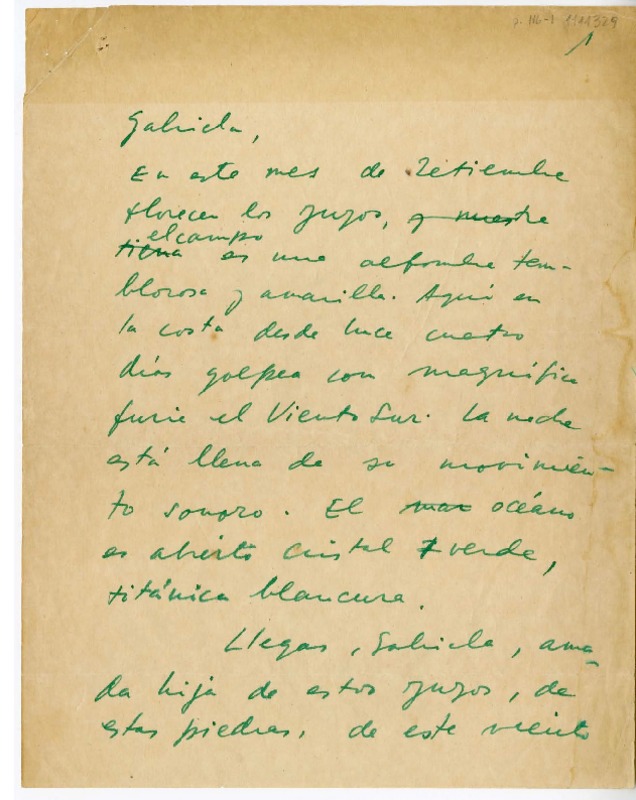 p. 116-1 1111329
1
Gabriela,
En este mes de Setiembre
florecen los yuyos, y nuestra
el campo
tierra es una alfombra tem-
blorosa y amarilla. Aquí en
la costa desde hace cuatro
días golpea con magnífica
furia el Viento Sur. La noche
está llena de su movimien-
to sonoro. El mar océano
es abierto cristal verde,
titánica blancura.
Llegas, Gabriela, ama-
da hija de estos yuyos, de
estas piedras, de este viento